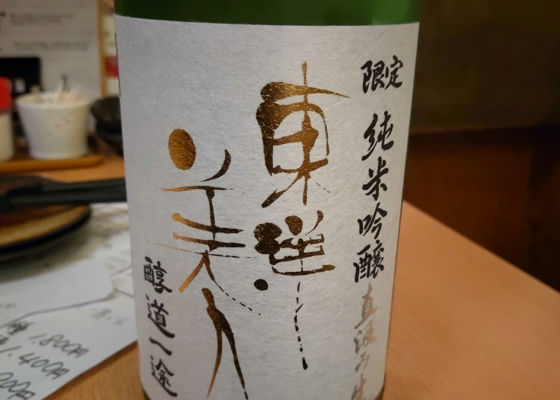 限定
純米吟醸
直汲み生
東洋
美人
醇道一途
1,800円
1,400円